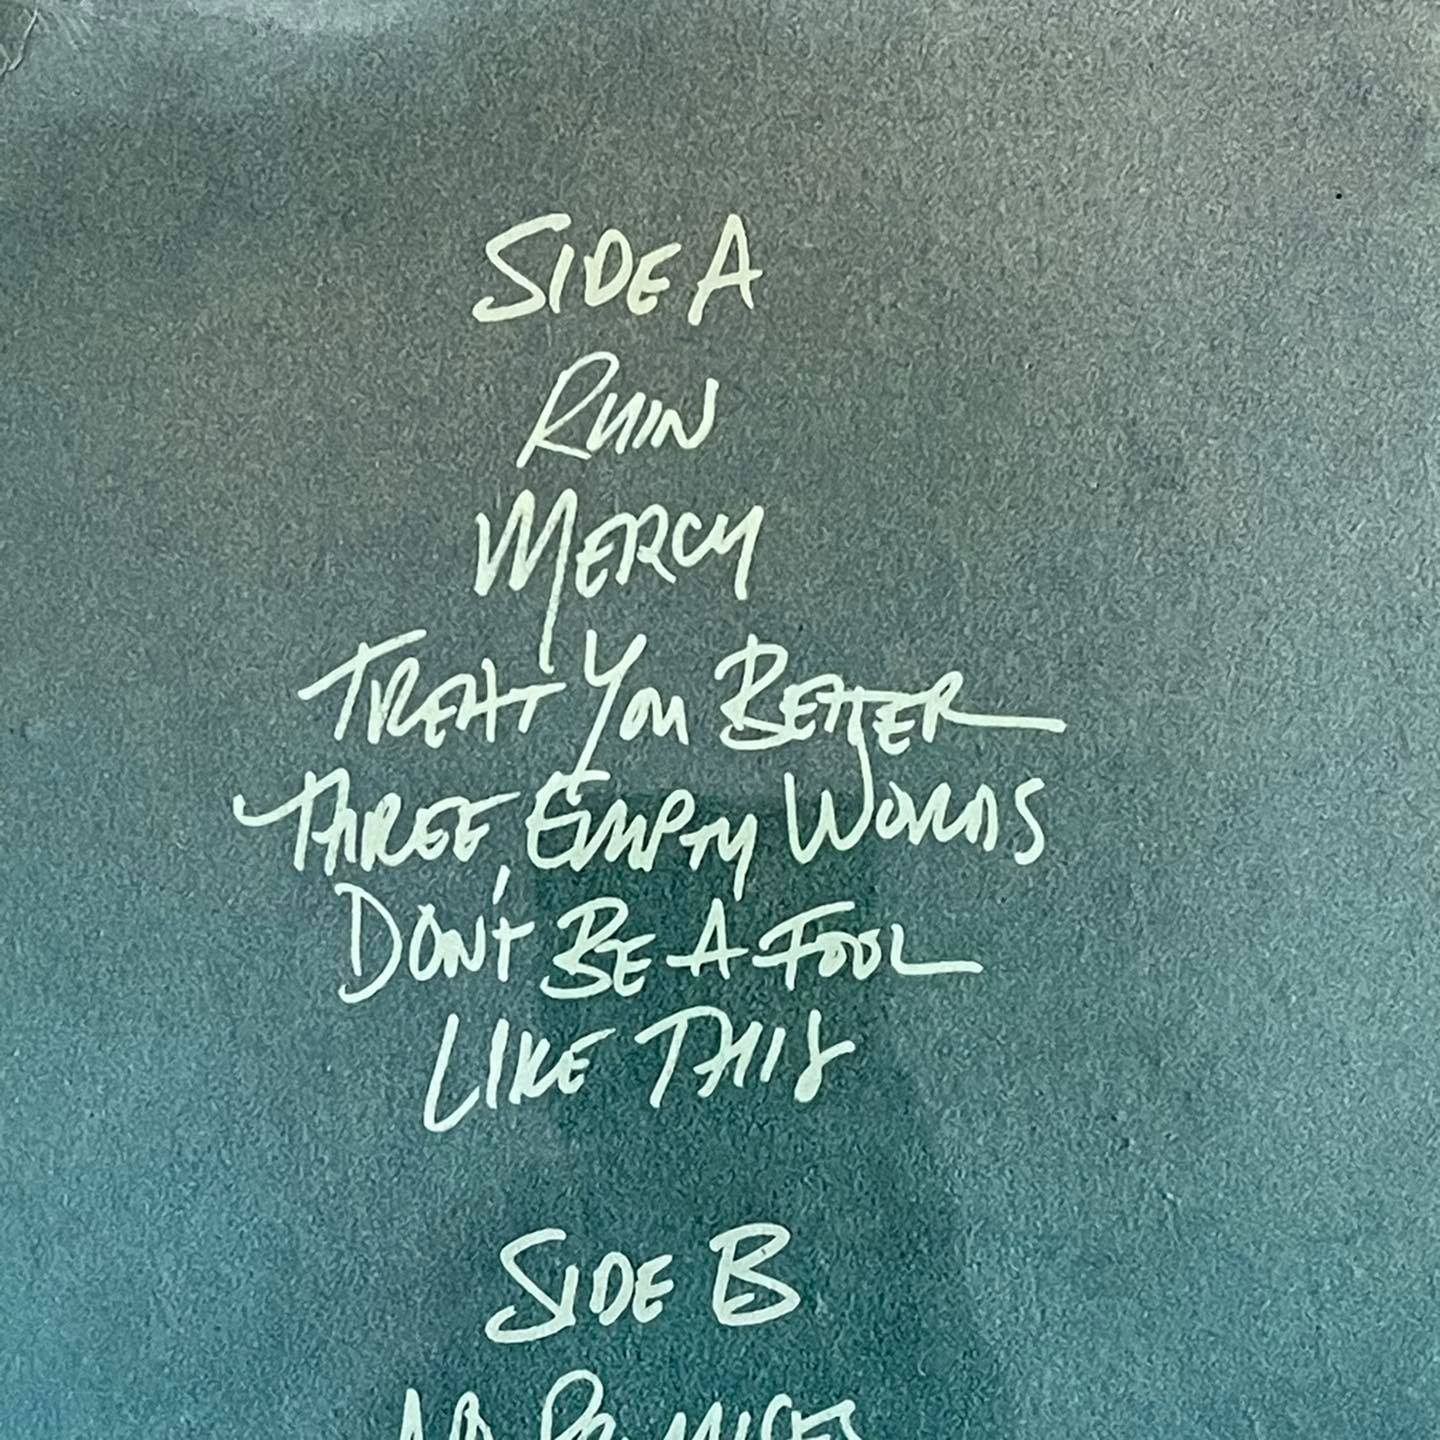 SIDE A
RUIN
MERCY
TREAT YOU BETTER
THREE EMPTY WORDS
DON'T BE A FOOL
LIKE THIS
SIDE B
NO PROMISES